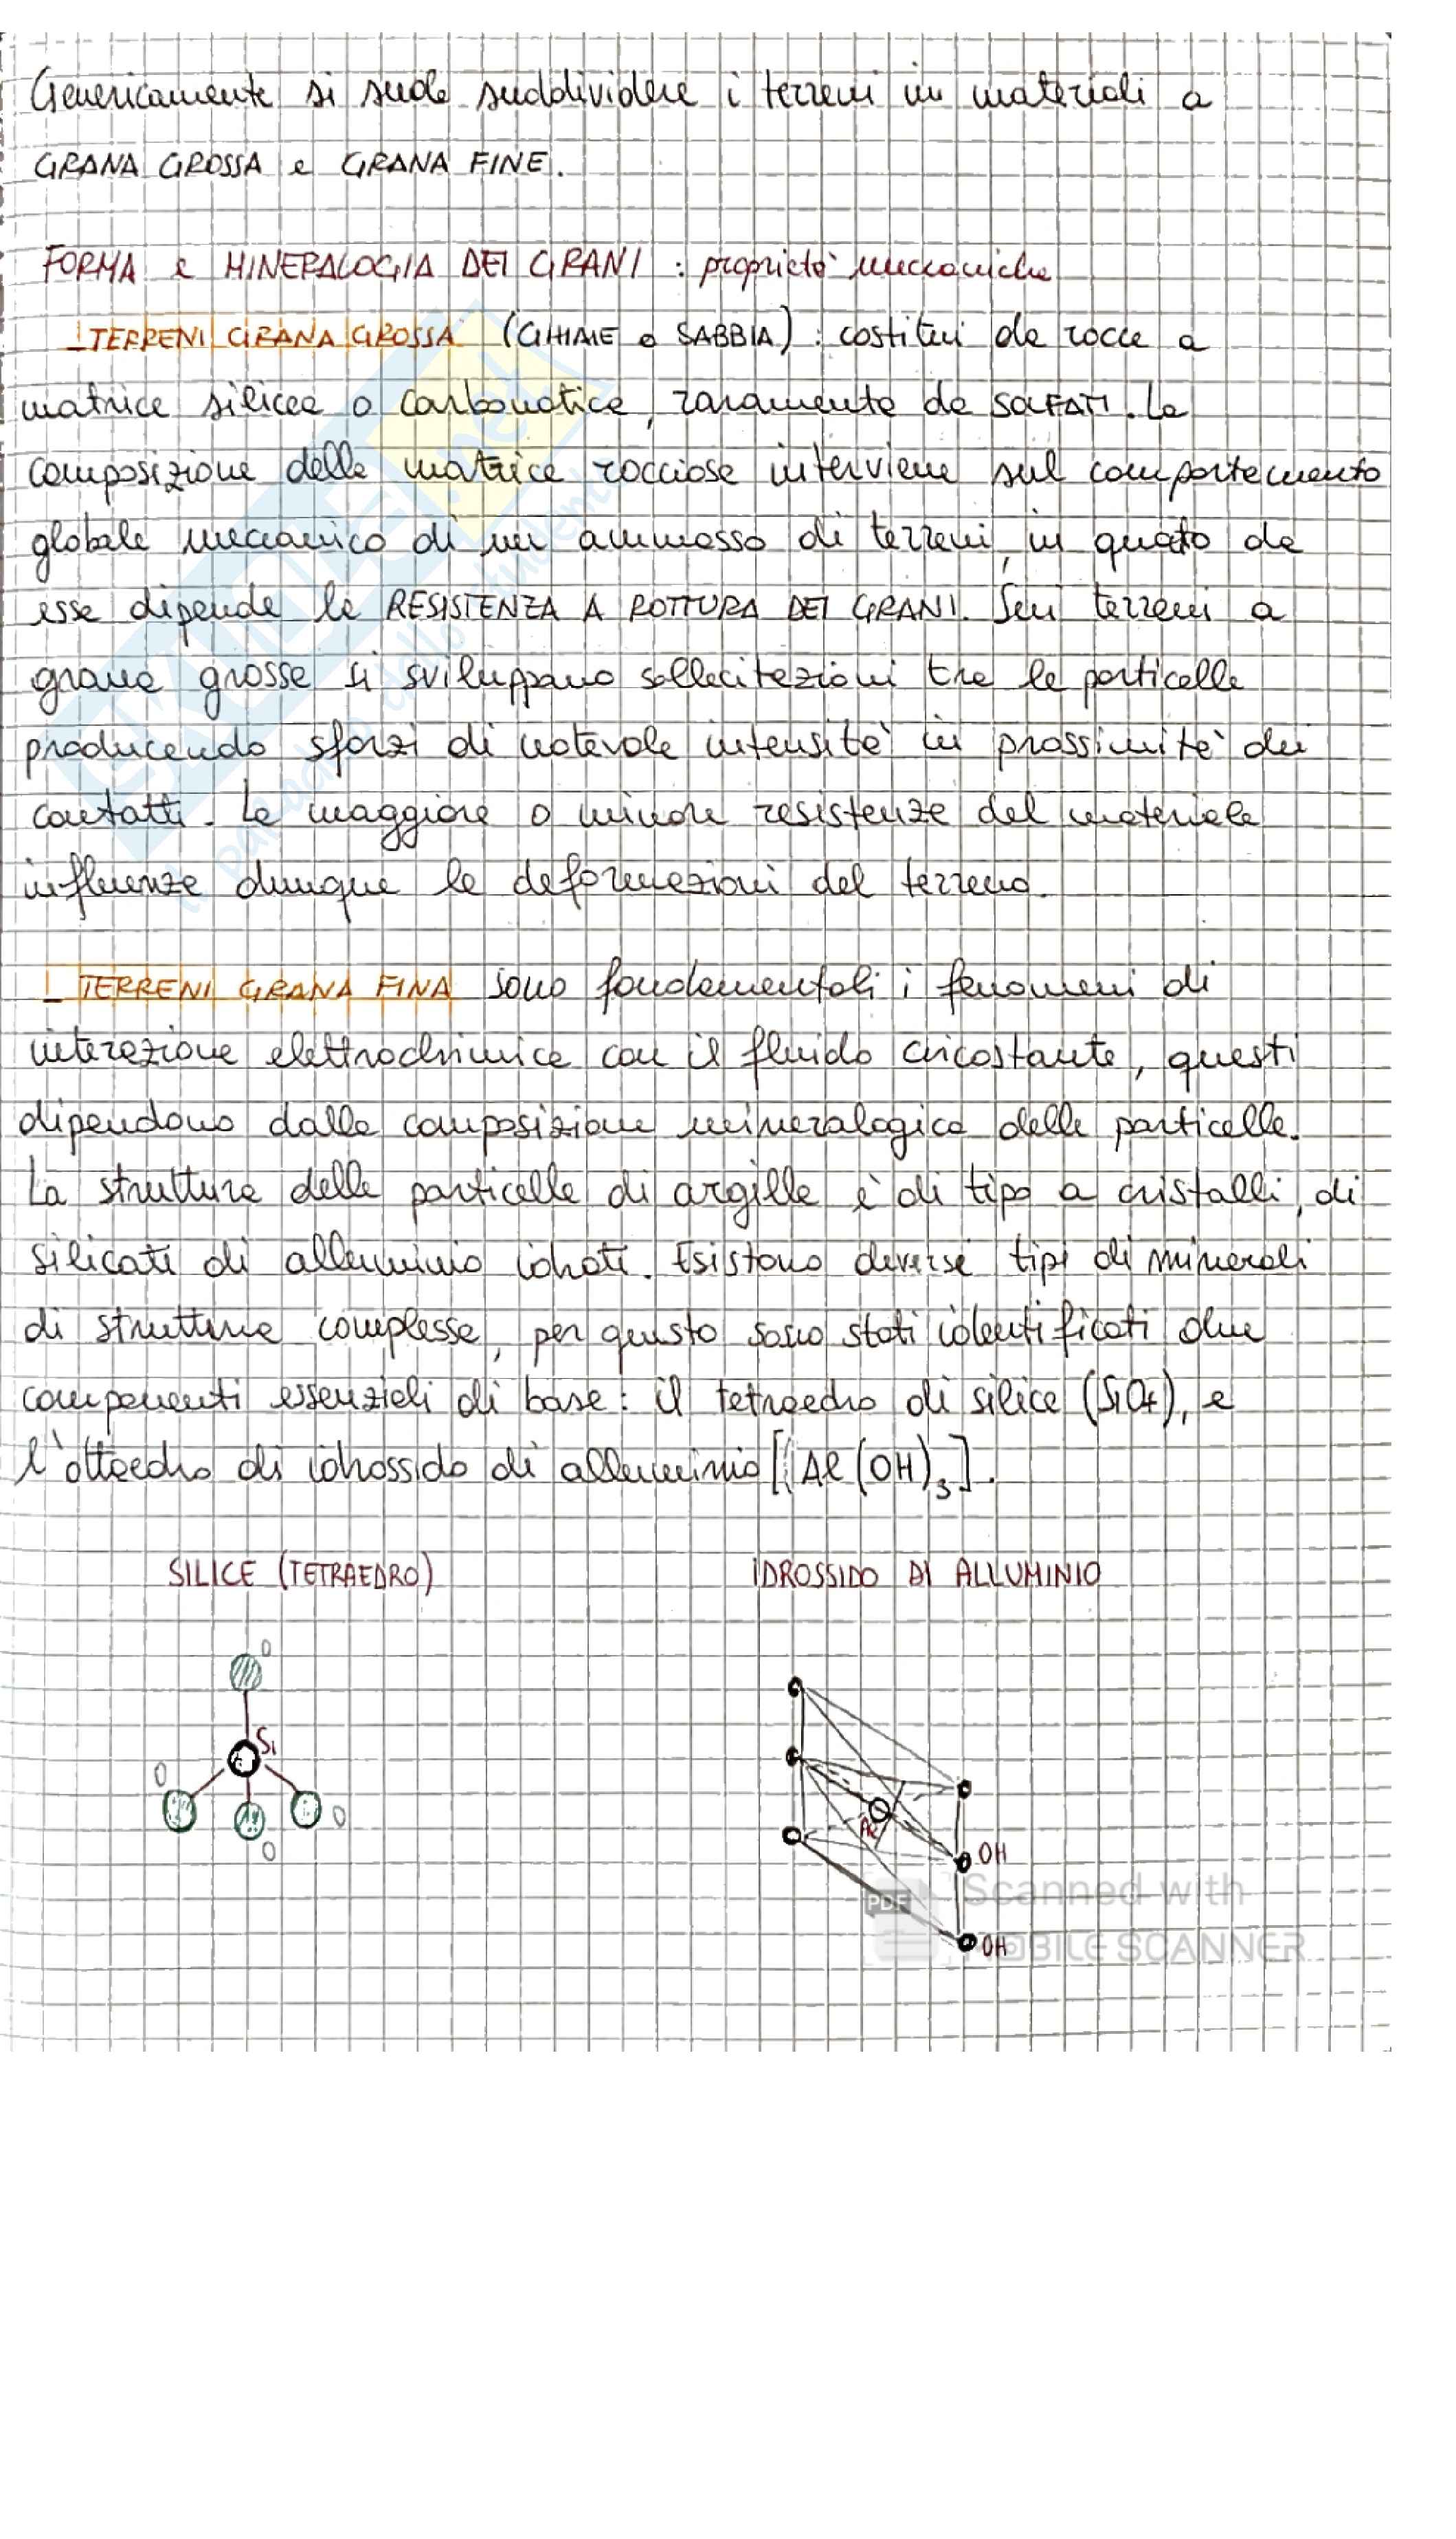 Genericamente si suole suddividere i terreni in materiali a
GRANA GROSSA e GRANA FINE.
FORMA e MINERALOGIA DEI GRANI : proprietà meccaniche
_ TERRENI GRANA GROSSA (GHIAIE o SABBIA) : costituiti da rocce a
matrice silicea o carbonatica, raramente da SOLFATI. La
composizione della matrice rocciosa interviene sul comportamento
globale meccanico di un ammasso di terreni, in quato da
essa dipende la RESISTENZA A ROTTURA DEI GRANI. Sui terreni a
grana grossa si sviluppano sollecitazioni tra le particelle
producendo sforzi di notevole intensità in prossimità dei
contatti. La maggiore o minore resistenza del materiale
influenza dunque la deformazioni del terreno.
_ TERRENI GRANA FINA sono fondamentali i fenomeni di
interazione elettrochimica con il fluido circostante, questi
dipendono dalla composizione mineralogica delle particelle.
La struttura delle particelle di argilla è di tipo a cristalli, di
silicati di alluminio idrati. Esistono diverse tipi di minerali
di struttura complessa, per questo sono stati identificati due
componenti essenziali di base: il tetraedro di silice (SiO4), e
l'ottaedro di idrossido di alluminio [(Al(OH)3].
SILICE (TETRAEDRO) IDROSSIDO DI ALLUMINIO
O
Si
O
O
O
Al
OH
OH
SKUOLA.net
il paradiso dello studente
PDF
Scanned with
MOBILE SCANNER